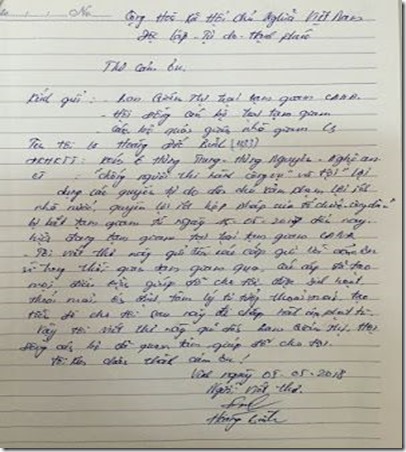 No
Cộng Hoà Xã Hội Chủ Nghĩa Việt Nam
Độc lập - Tự do - Hạnh phúc
Thư cảm ơn.
Kính gửi : - Ban Giám Thị trại tạm giam CANA
- Hội đồng cán bộ trại tạm giam
- Cán bộ quản giáo nhà giam
Tên tôi là Hoàng Đức Bình (1983)
HKTT: Xóm 6 Hưng Trung - Hưng Nguyên - Nghệ an
"chống người thi hành công vụ" và tội "lợi
dụng các quyền tự do dân chủ xâm phạm lợi ích
nhà nước, quyền lợi ích hợp pháp của tổ chức, công dân"
bị bắt tạm giam từ ngày 15-05-2017 đến nay.
hiện đang tạm giam tại trại tạm giam CANA
- Tôi viết thư này gửi tới các cấp lời cảm ơn
vì trong thời gian tạm giam qua, đã tạo
mọi điều kiện giúp đỡ cho tôi được sinh hoạt
thoải mái, ổn định tâm lý tư tưởng thoải mái, tạo
tiền đề cho tôi sau này
Vậy tôi viết thư này gửi đến ban Giám Thị, Hội
đồng cán bộ đã quan tâm giúp đỡ cho tôi.
Tôi xin chân thành cảm ơn !
Vinh ngày 05-05-2018
Người viết thư.
Hoàng Bình